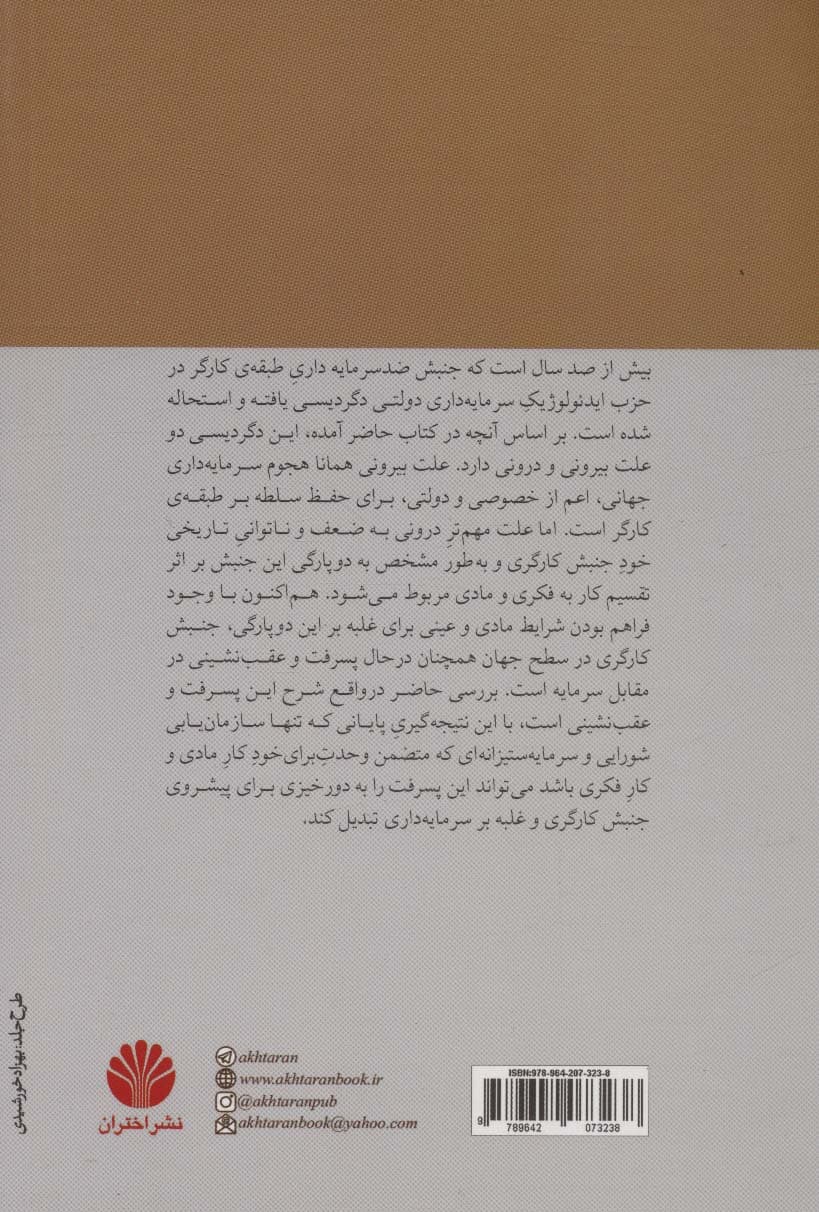 بیش از صد سال است که جنبش ضدسرمایه داریِ طبقه‌ی کارگر در
حزب ایدئولوژیکِ سرمایه‌داری دولتی دگردیسی یافته و استحاله
شده است. بر اساس آنچه در کتاب حاضر آمده، این دگردیسی دو
علت بیرونی و درونی دارد. علت بیرونی همانا هجوم سرمایه‌داری
جهانی، اعم از خصوصی و دولتی، برای حفظ سلطه بر طبقه‌ی
کارگر است. اما علت مهم‌ترِ درونی به ضعف و ناتوانیِ تاریخی
خودِ جنبش کارگری و به‌طور مشخص به دوپارگی این جنبش بر اثر
تقسیم کار به فکری و مادی مربوط می‌شود. هم‌اکنون با وجود
فراهم بودن شرایط مادی و عینی برای غلبه بر این دوپارگی، جنبش
کارگری در سطح جهان همچنان درحال پسرفت و عقب‌نشینی در
مقابل سرمایه است. بررسی حاضر درواقع شرح این پسرفت و
عقب‌نشینی است، با این نتیجه‌گیریِ پایانی که تنها سازمان‌یابی
شورایی و سرمایه‌ستیزانه‌ای که متضمن وحدتِ‌برای‌خودِ کارِ مادی و
کارِ فکری باشد می‌تواند این پسرفت را به دورخیزی برای پیشروی
جنبش کارگری و غلبه بر سرمایه‌داری تبدیل کند.
طرح جلد: بهزاد خورشیدی
نشر اختران
akhtaran
www.akhtaranbook.ir
@akhtaranpub
akhtaranbook@yahoo.com
ISBN:978-964-207-323-8
9 789642 073238